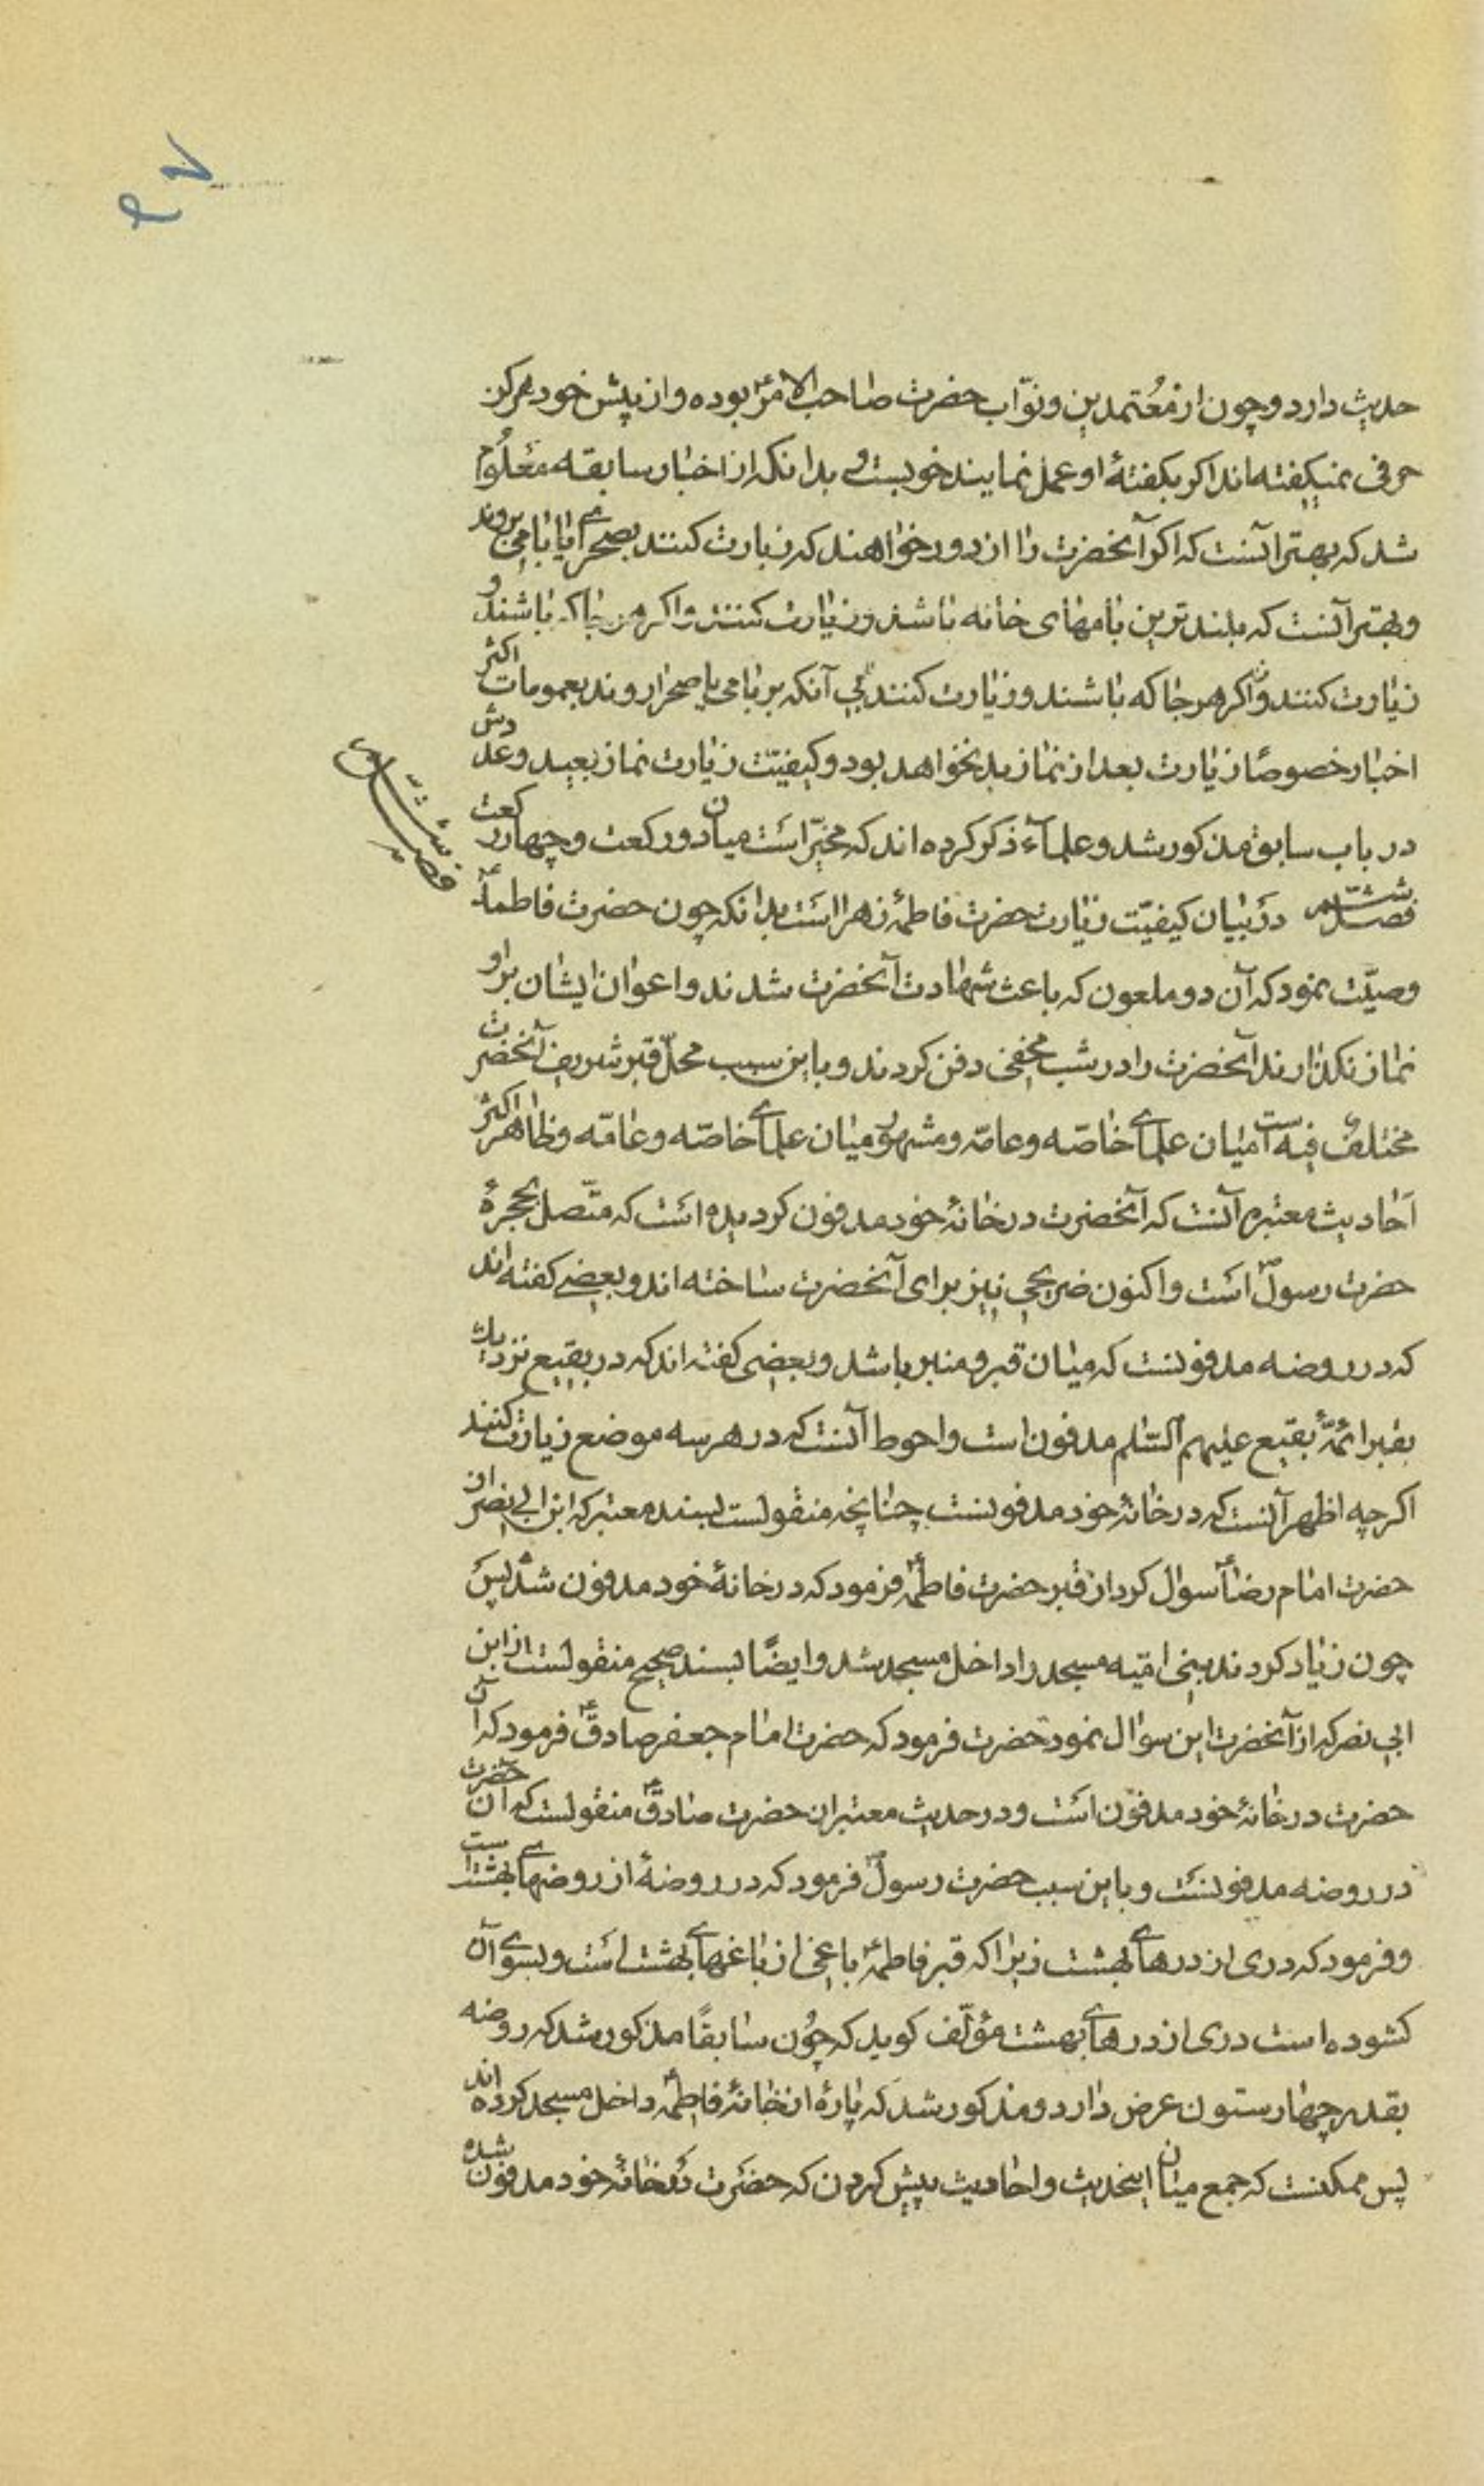 حدیث دارد و چون از معُتمدین و نوّاب حضرت صاحب الامرؑ بوده و از پیش خود هرکز
حرفی نمیکفته اند اکر بکفتهٔ او عمل نمایند خوبست و بدانکه از اخبار سابقه معلُوم
شد که بهتر آنست که اکر آنحضرت را از دور خواهند که زیارت کنند بصحرائی یا بامی بروند
و بهتر آنست که بلند ترین بامهای خانه باشد و زیارت کنند و اکر هر جا که باشند و
زیارت کنند و اکر هر جا که باشند و زیارت کنند بی آنکه بر بامی یا صحرا روند بعمومات اکثر
اخبار خصوصًا زیارت بعد از نماز بد نخواهد بود و کیفیّت زیارت نماز بعید و عددش
در باب سابق مذکور شد و علمآء ذکر کرده اند که مخیّر است میان دو رکعت و چهار رکعت
فصل ششم در بیان کیفیّت زیارت حضرت فاطمهٔ زهرا است بدانکه چون حضرت فاطمهؑ
وصیّت نمود که آن دو ملعون که باعث شهادت آنحضرت شدند و اعوان ایشان بر او
نماز نکذارند آنحضرت را در شب مخفی دفن کردند و باین سبب محلّ قبر شریف آنحضرت
مختلف فیه است میان علمای خاصّه و عامّه و مشهور میان علمای خاصّه و عامّه و ظاهر اکثر
اَحادیث معتبره آنست که آنحضرت در خانهٔ خود مدفون کردیده است که متّصل بحجرهٔ
حضرت رسولؐ است و اکنون ضریحی نیز برای آنحضرت ساخته اند و بعضی کفته اند
که در روضه مدفونست که میان قبر و منبر باشد و بعضی کفته اند که در بقیع نزدیك
بقبر ائمّهٔ بقیع علیهم السّلم مدفون است و احوط آنست که در هر سه موضع زیارت کنند
اکرچه اظهر آنست که در خانهٔ خود مدفونست چنانچه منقولست بسند معتبر که ابن ابی نصر از
حضرت امام رضاؑ سوال کرد از قبر حضرت فاطمهؑ فرمود که در خانهٔ خود مدفون شد پس
چون زیاد کردند بنی امیّه مسجد را داخل مسجد شد و ایضًا بسند صحیح منقولست از ابن
ابی نصر که از آنحضرت این سوال نمود حضرت فرمود که حضرت امام جعفر صادقؑ فرمود که آن
حضرت در خانهٔ خود مدفون است و در حدیث معتبر از حضرت صادقؑ منقولست که آن حضرت
در روضه مدفونست و باین سبب حضرت رسولؐ فرمود که در روضهٔ از روضهای بهشتست
و فرمود که دری از درهای بهشت زیرا که قبر فاطمهؑ باغی از باغهای بهشت است و بسوی آن
کشوده است دری از درهای بهشت مؤلّف کوید که چُون سابقًا مذکور شد که روضه
بقدر چهار ستون عرض دارد و مذکور شد که پارهٔ از خانهٔ فاطمهؑ داخل مسجد کرده اند
پس ممکنست که جمع میان اینحدیث و احادیث پیش کردن که حضرت در خانهٔ خود مدفون شده
فصل ششم